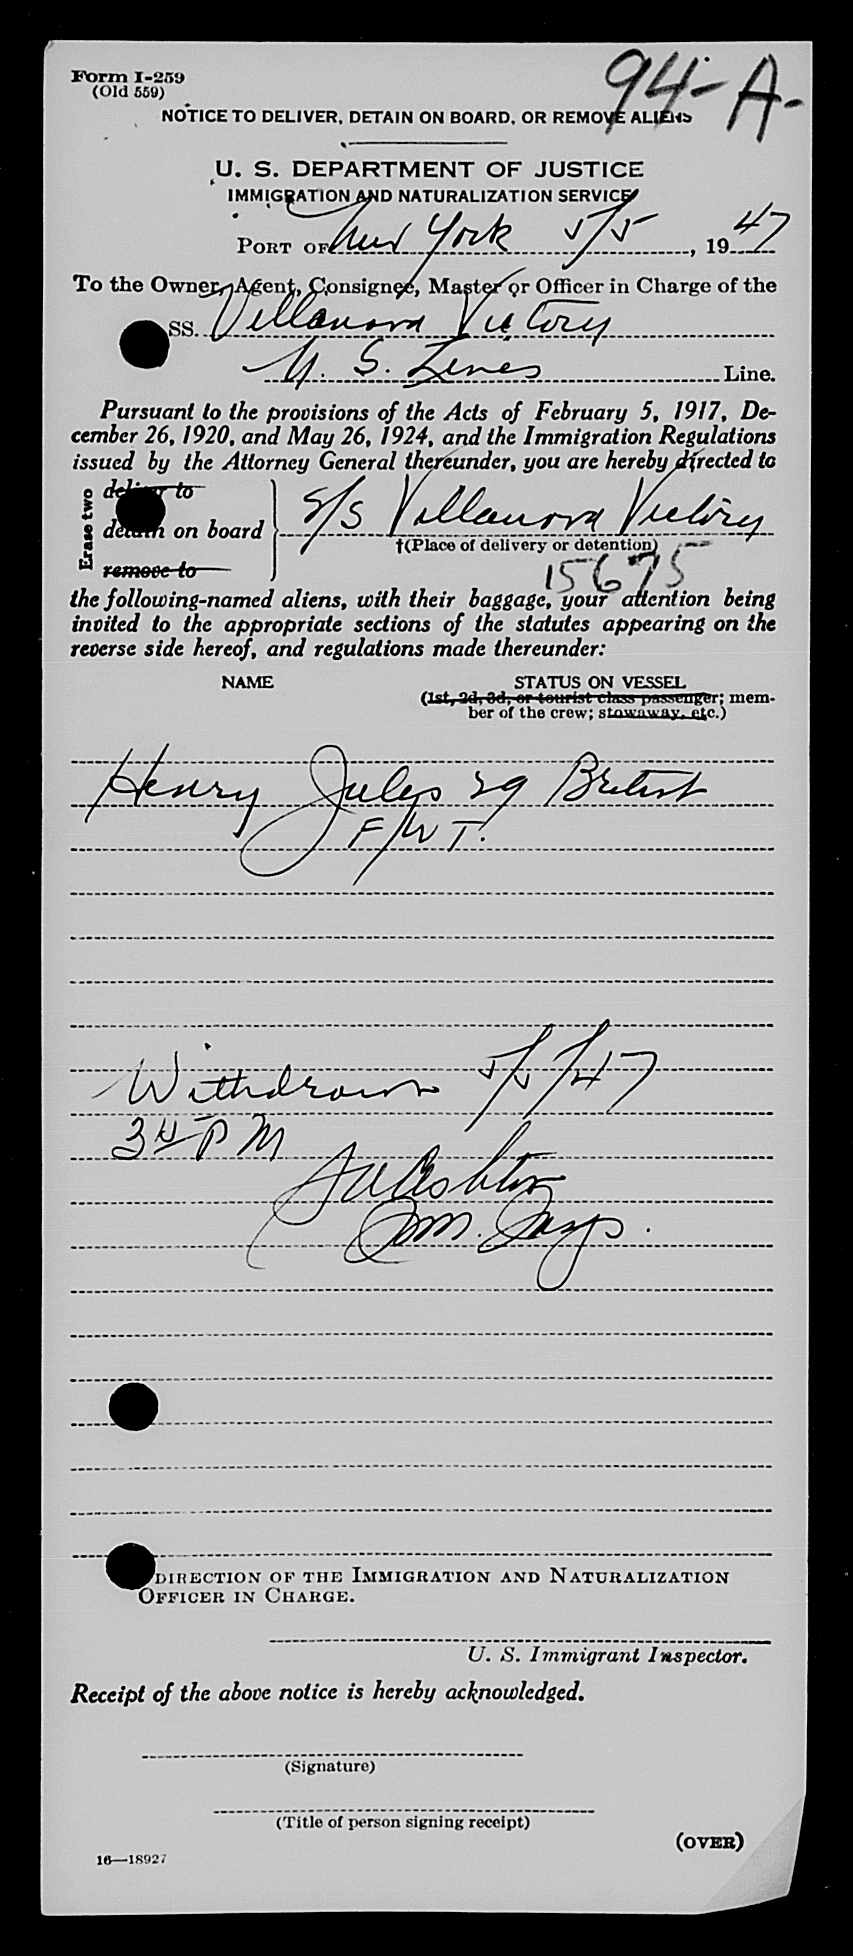 94-A-
Form I-259
(Old 559)
NOTICE TO DELIVER, DETAIN ON BOARD, OR REMOVE ALIENS
U. S. DEPARTMENT OF JUSTICE
IMMIGRATION AND NATURALIZATION SERVICE
PORT OF New York 5/5, 1947
To the Owner, Agent, Consignee, Master or Officer in Charge of the
SS. Villanova Victory
U. S. Lines Line.
Pursuant to the provisions of the Acts of February 5, 1917, De-
cember 26, 1920, and May 26, 1924, and the Immigration Regulations
issued by the Attorney General thereunder, you are hereby directed to
Erase two
deliver to
detain on board S/S Villanova Victory
†(Place of delivery or detention)
remove to
15675
the following-named aliens, with their baggage, your attention being
invited to the appropriate sections of the statutes appearing on the
reverse side hereof, and regulations made thereunder:
NAME STATUS ON VESSEL
(1st, 2d, 3d, or tourist class passenger; mem-
ber of the crew; stowaway, etc.)
Henry Jules 29 British
F/W T.
Withdrawn 5/5/47
3 PM
DIRECTION OF THE IMMIGRATION AND NATURALIZATION
OFFICER IN CHARGE.
U. S. Immigrant Inspector.
Receipt of the above notice is hereby acknowledged.
(Signature)
(Title of person signing receipt)
(OVER)
16—18927